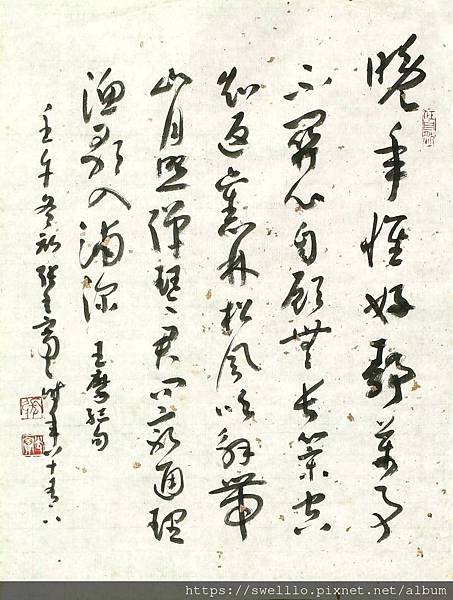 晚年惟好靜萬事
不關心自顧無長策空
知返舊林松風吹解帶
山月照彈琴君問窮通理
漁歌入浦深 王摩詰句
壬午冬初 時年八十有八
https://swelllo.pixnet.net/album